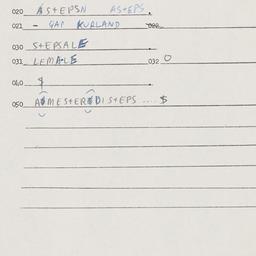 020 ASTEPSN ASTEPS.
021 - GAP KURLAND 022
030 STEPSALE
031 LEMALE 032 O
040 $
050 AOMESTERODISTEPS .... $